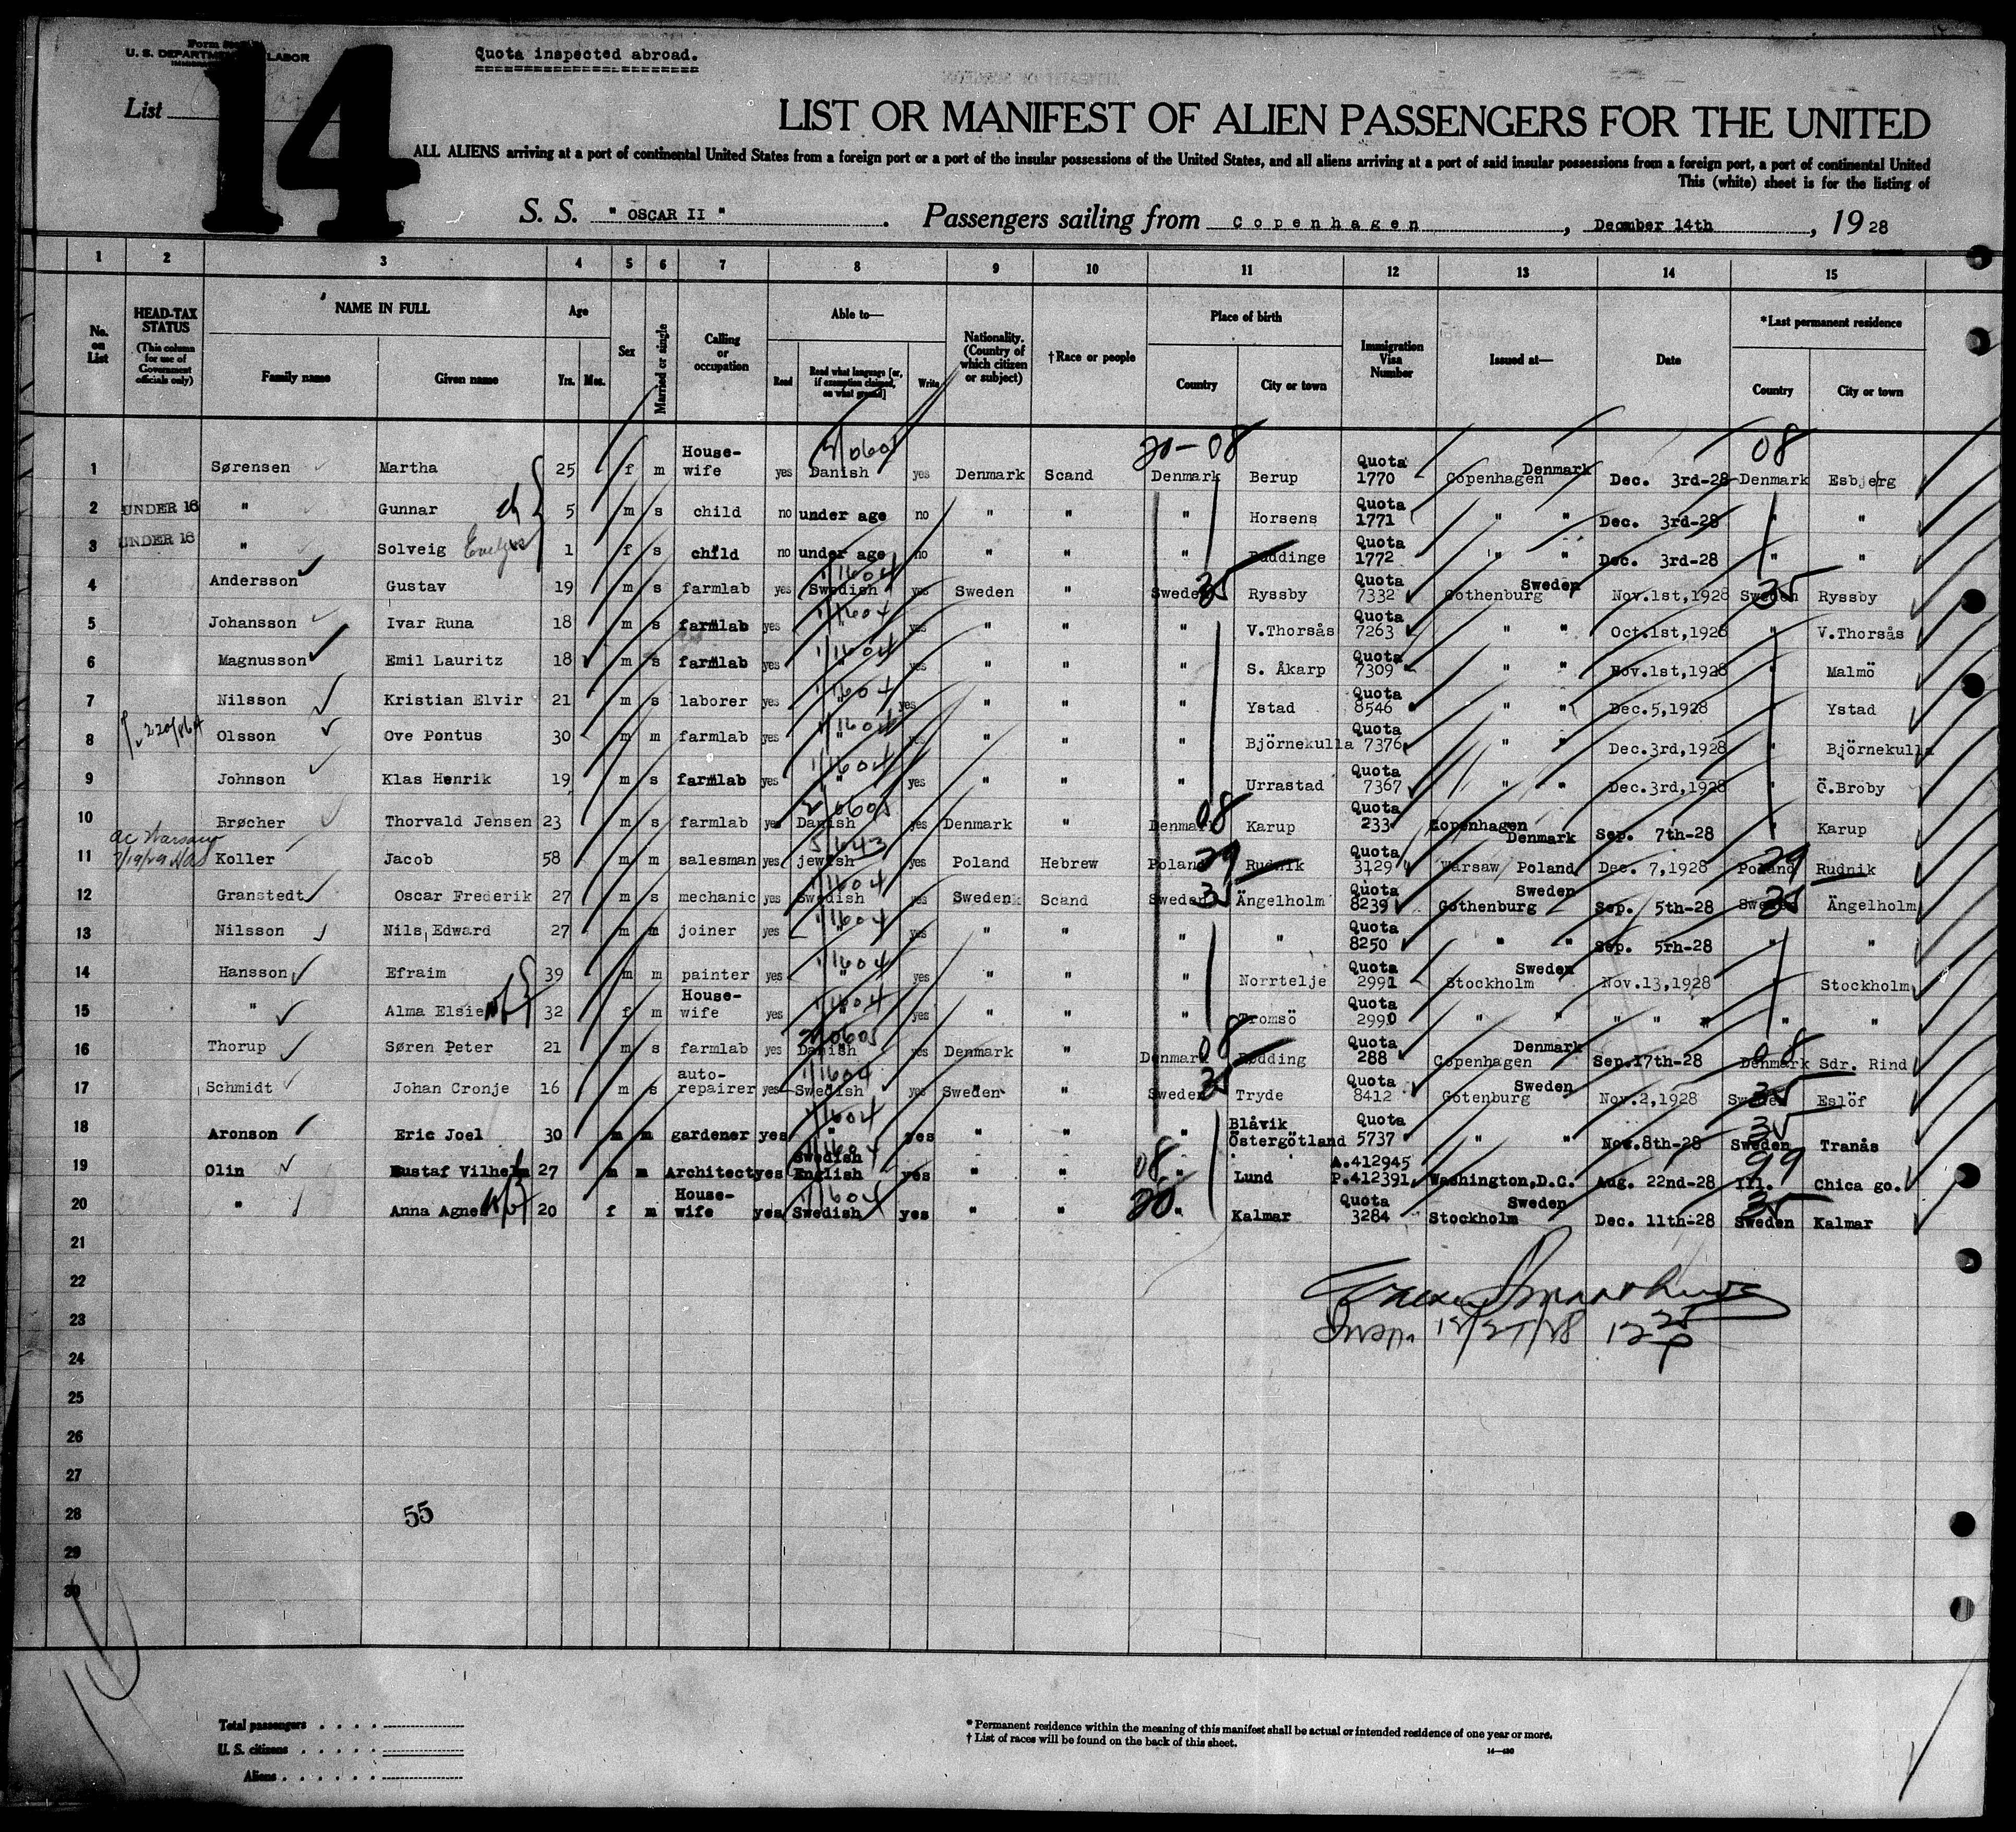 Form
U. S. DEPARTMENT LABOR
Quota inspected abroad.
14
List
LIST OR MANIFEST OF ALIEN PASSENGERS FOR THE UNITED
ALL ALIENS arriving at a port of continental United States from a foreign port or a port of the insular possessions of the United States, and all aliens arriving at a port of said insular possessions from a foreign port, a port of continental United
This (white) sheet is for the listing of
S. S. " OSCAR II " . Passengers sailing from Copenhagen , December 14th , 19 28
1 2 3 4 5 6 7 8 9 10 11 12 13 14 15
No. on List HEAD-TAX STATUS (This column for use of Government officials only) NAME IN FULL Family name Given name Age Yrs. Mos. Sex Married or single Calling or occupation Able to— Read Read what language [or, if exemption claimed, on what ground] Write Nationality. (Country of which citizen or subject) †Race or people Place of birth Country City or town Immigration Visa Number Issued at— Date *Last permanent residence Country City or town
20-08 08
1 Sørensen Martha 25 f m House-wife yes Danish yes Denmark Scand Denmark Berup Quota 1770 Copenhagen Denmark Dec. 3rd-28 Denmark Esbjerg
2 UNDER 16 " Gunnar ch 5 m s child no under age no " " " Horsens Quota 1771 " " Dec. 3rd-28 " "
3 UNDER 16 " Solveig 1 f s child no under age no " " " Buddinge Quota 1772 " " Dec. 3rd-28 " "
4 Andersson Gustav 19 m s farmlab yes Swedish 1/1604 yes Sweden " Sweden 35 Ryssby Quota 7332 Gothenburg Sweden Nov.1st,1928 Sweden 35 Ryssby
5 Johansson Ivar Runa 18 m s farmlab yes " 1/1604 yes " " " V.Thorsås Quota 7263 " " Oct.1st,1928 " V.Thorsås
6 Magnusson Emil Lauritz 18 m s farmlab yes " 1/1604 yes " " " S. Åkarp Quota 7309 " " Nov.1st,1928 " Malmö
7 Nilsson Kristian Elvir 21 m s laborer yes " 1/1604 yes " " " Ystad Quota 8546 " " Dec.5,1928 " Ystad
8 Olsson Ove Pontus 30 m m farmlab yes " 1/1604 yes " " " Björnekulla Quota 7376 " " Dec.3rd,1928 " Björnekulla
9 Johnson Klas Henrik 19 m s farmlab yes " 1/1604 yes " " " Urrastad Quota 7367 " " Dec.3rd,1928 " Ö.Broby
10 Brøcher Thorvald Jensen 23 m s farmlab yes Danish 2/0605 yes Denmark " Denmark 08 Karup Quota 233 Kopenhagen Denmark Sep. 7th-28 " Karup
11 Koller Jacob 58 m m salesman yes jewish yes Poland Hebrew Poland 29 Rudnik Quota 3129 Warsaw Poland Dec. 7,1928 Poland 29 Rudnik
12 Granstedt Oscar Frederik 27 m s mechanic yes Swedish 1/1604 yes Sweden Scand Sweden 35 Ängelholm Quota 8239 Gothenburg Sweden Sep. 5th-28 Sweden 35 Ängelholm
13 Nilsson Nils Edward 27 m m joiner yes " 1/1604 yes " " " " Quota 8250 " " Sep. 5rh-28 " "
14 Hansson Efraim 39 m m painter yes " 1/1604 yes " " " Norrtelje Quota 2991 Stockholm Sweden Nov.13,1928 " Stockholm
15 " Alma Elsie wf 32 f m House-wife yes " 1/1604 yes " " " Tromsö Quota 2990 " " " " " " "
16 Thorup Søren Peter 21 m s farmlab yes Danish 2/0605 yes Denmark " Denmark 08 Rødding Quota 288 Copenhagen Denmark Sep.17th-28 Denmark 08 Sdr. Rind
17 Schmidt Johan Cronje 16 m s auto-repairer yes Swedish 1/1604 yes Sweden " Sweden 35 Tryde Quota 8412 Gotenburg Sweden Nov.2,1928 Sweden 35 Eslöf
18 Aronson Eric Joel 30 m m gardener yes " 1/1604 yes " " " Blåvik Östergötland Quota 5737 " " Nov.8th-28 Sweden 35 Tranås
19 Olin Gustaf Vilhelm 27 m m Architect yes Swedish English 1/1604 yes " " 08 " Lund A.412945 P.412391 Washington,D.C. Aug. 22nd-28 Ill. 99 Chica go.
20 " Anna Agnes wf 20 f m House-wife yes Swedish 1/1604 yes " " 20 " Kalmar Quota 3284 Stockholm Sweden Dec. 11th-28 Sweden 35 Kalmar
21
22
23
Insp. 12/27/28 12 25 P
24
25
26
27
28 55
29
30
Total passengers . . . .
U. S. citizens . . . . .
Aliens . . . . . .
* Permanent residence within the meaning of this manifest shall be actual or intended residence of one year or more.
† List of races will be found on the back of this sheet.
14—430